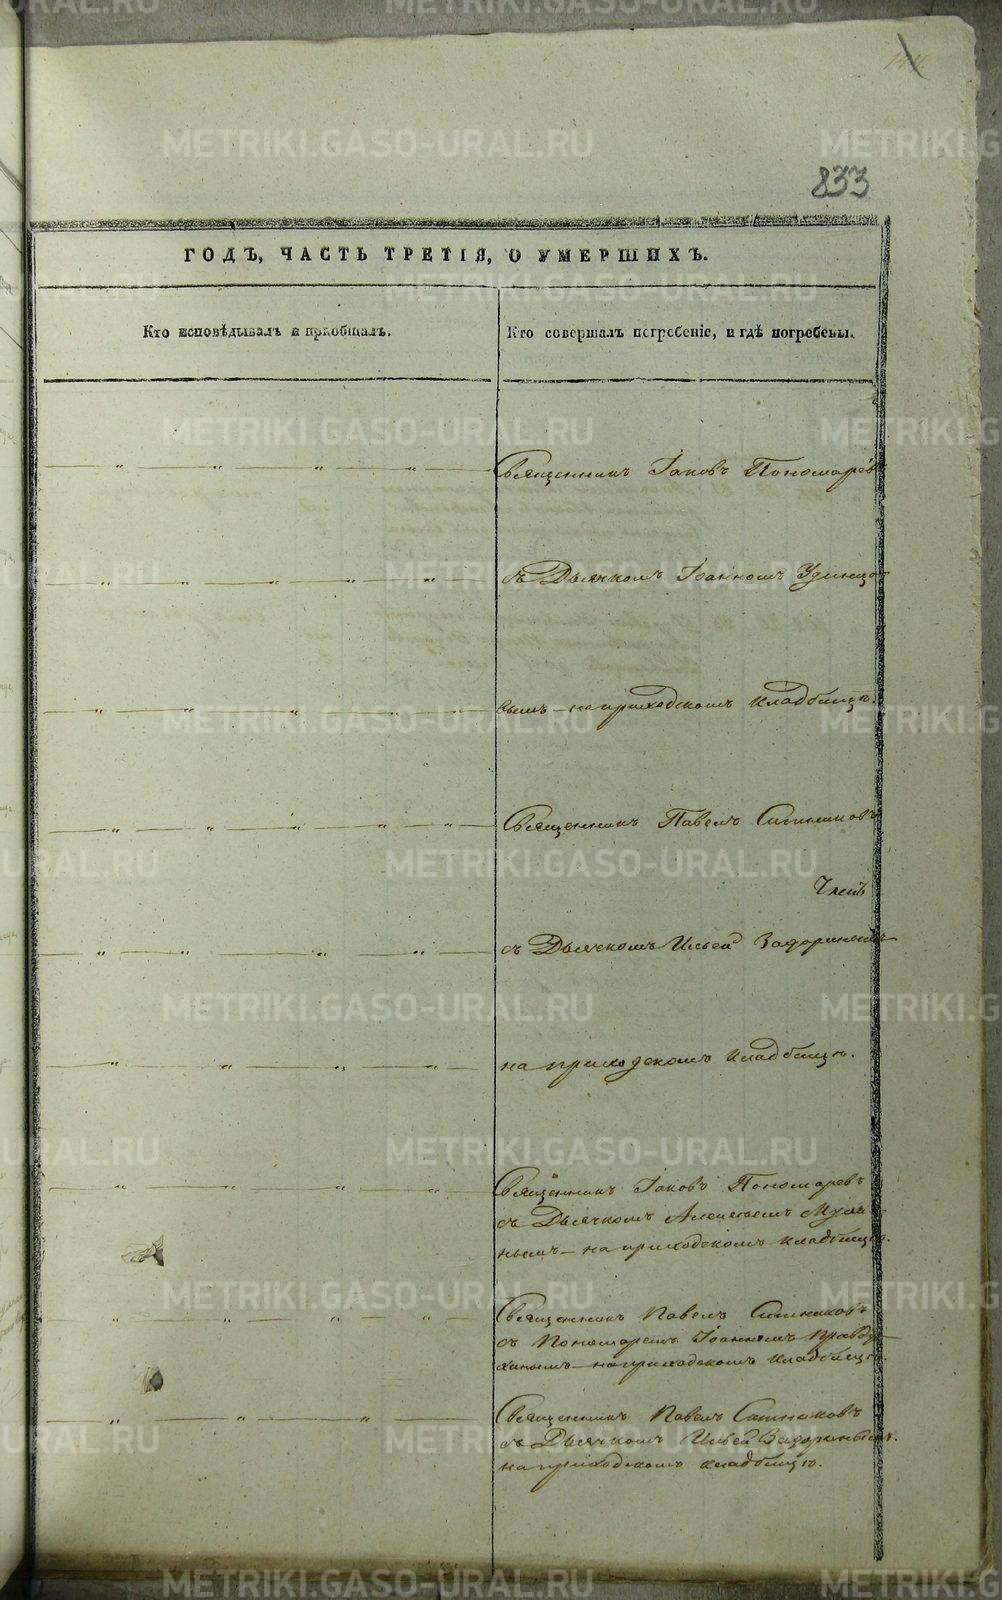 833
ГОДЪ, ЧАСТЬ ТРЕТІЯ, О УМЕРШИХЪ.
Кто исповѣдывалъ и пріобщалъ.
Кто совершалъ погребеніе, и гдѣ погребены.
Священникъ Іаковъ Пономаревъ
съ Дьячкомъ Іоанномъ Удинцо-
вымъ – на приходскомъ кладбищѣ.
Священникъ Павелъ Ситниковъ
съ Дьячкомъ Ильей
на приходскомъ кладбищѣ.
Священникъ Іаковъ Пономаревъ
съ Дьячкомъ Алексѣемъ
нымъ – на приходскомъ кладбищѣ.
Священникъ Павелъ Ситниковъ
съ Пономаремъ Іоанномъ
– на приходскомъ кладбищѣ.
Священникъ Павелъ Ситниковъ
съ Дьячкомъ Ильей
на приходскомъ кладбищѣ.
METRIKI.GASO-URAL.RU